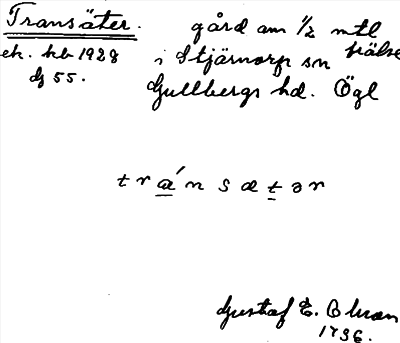 Transäter. gård om 1/2 mtl
ek. kb 1928 i Stjärnorp sn frälse
bj 55. Gullbergs hd. Ögl
t r á n s æ t ə r
Gustaf E. Ohman
1736.